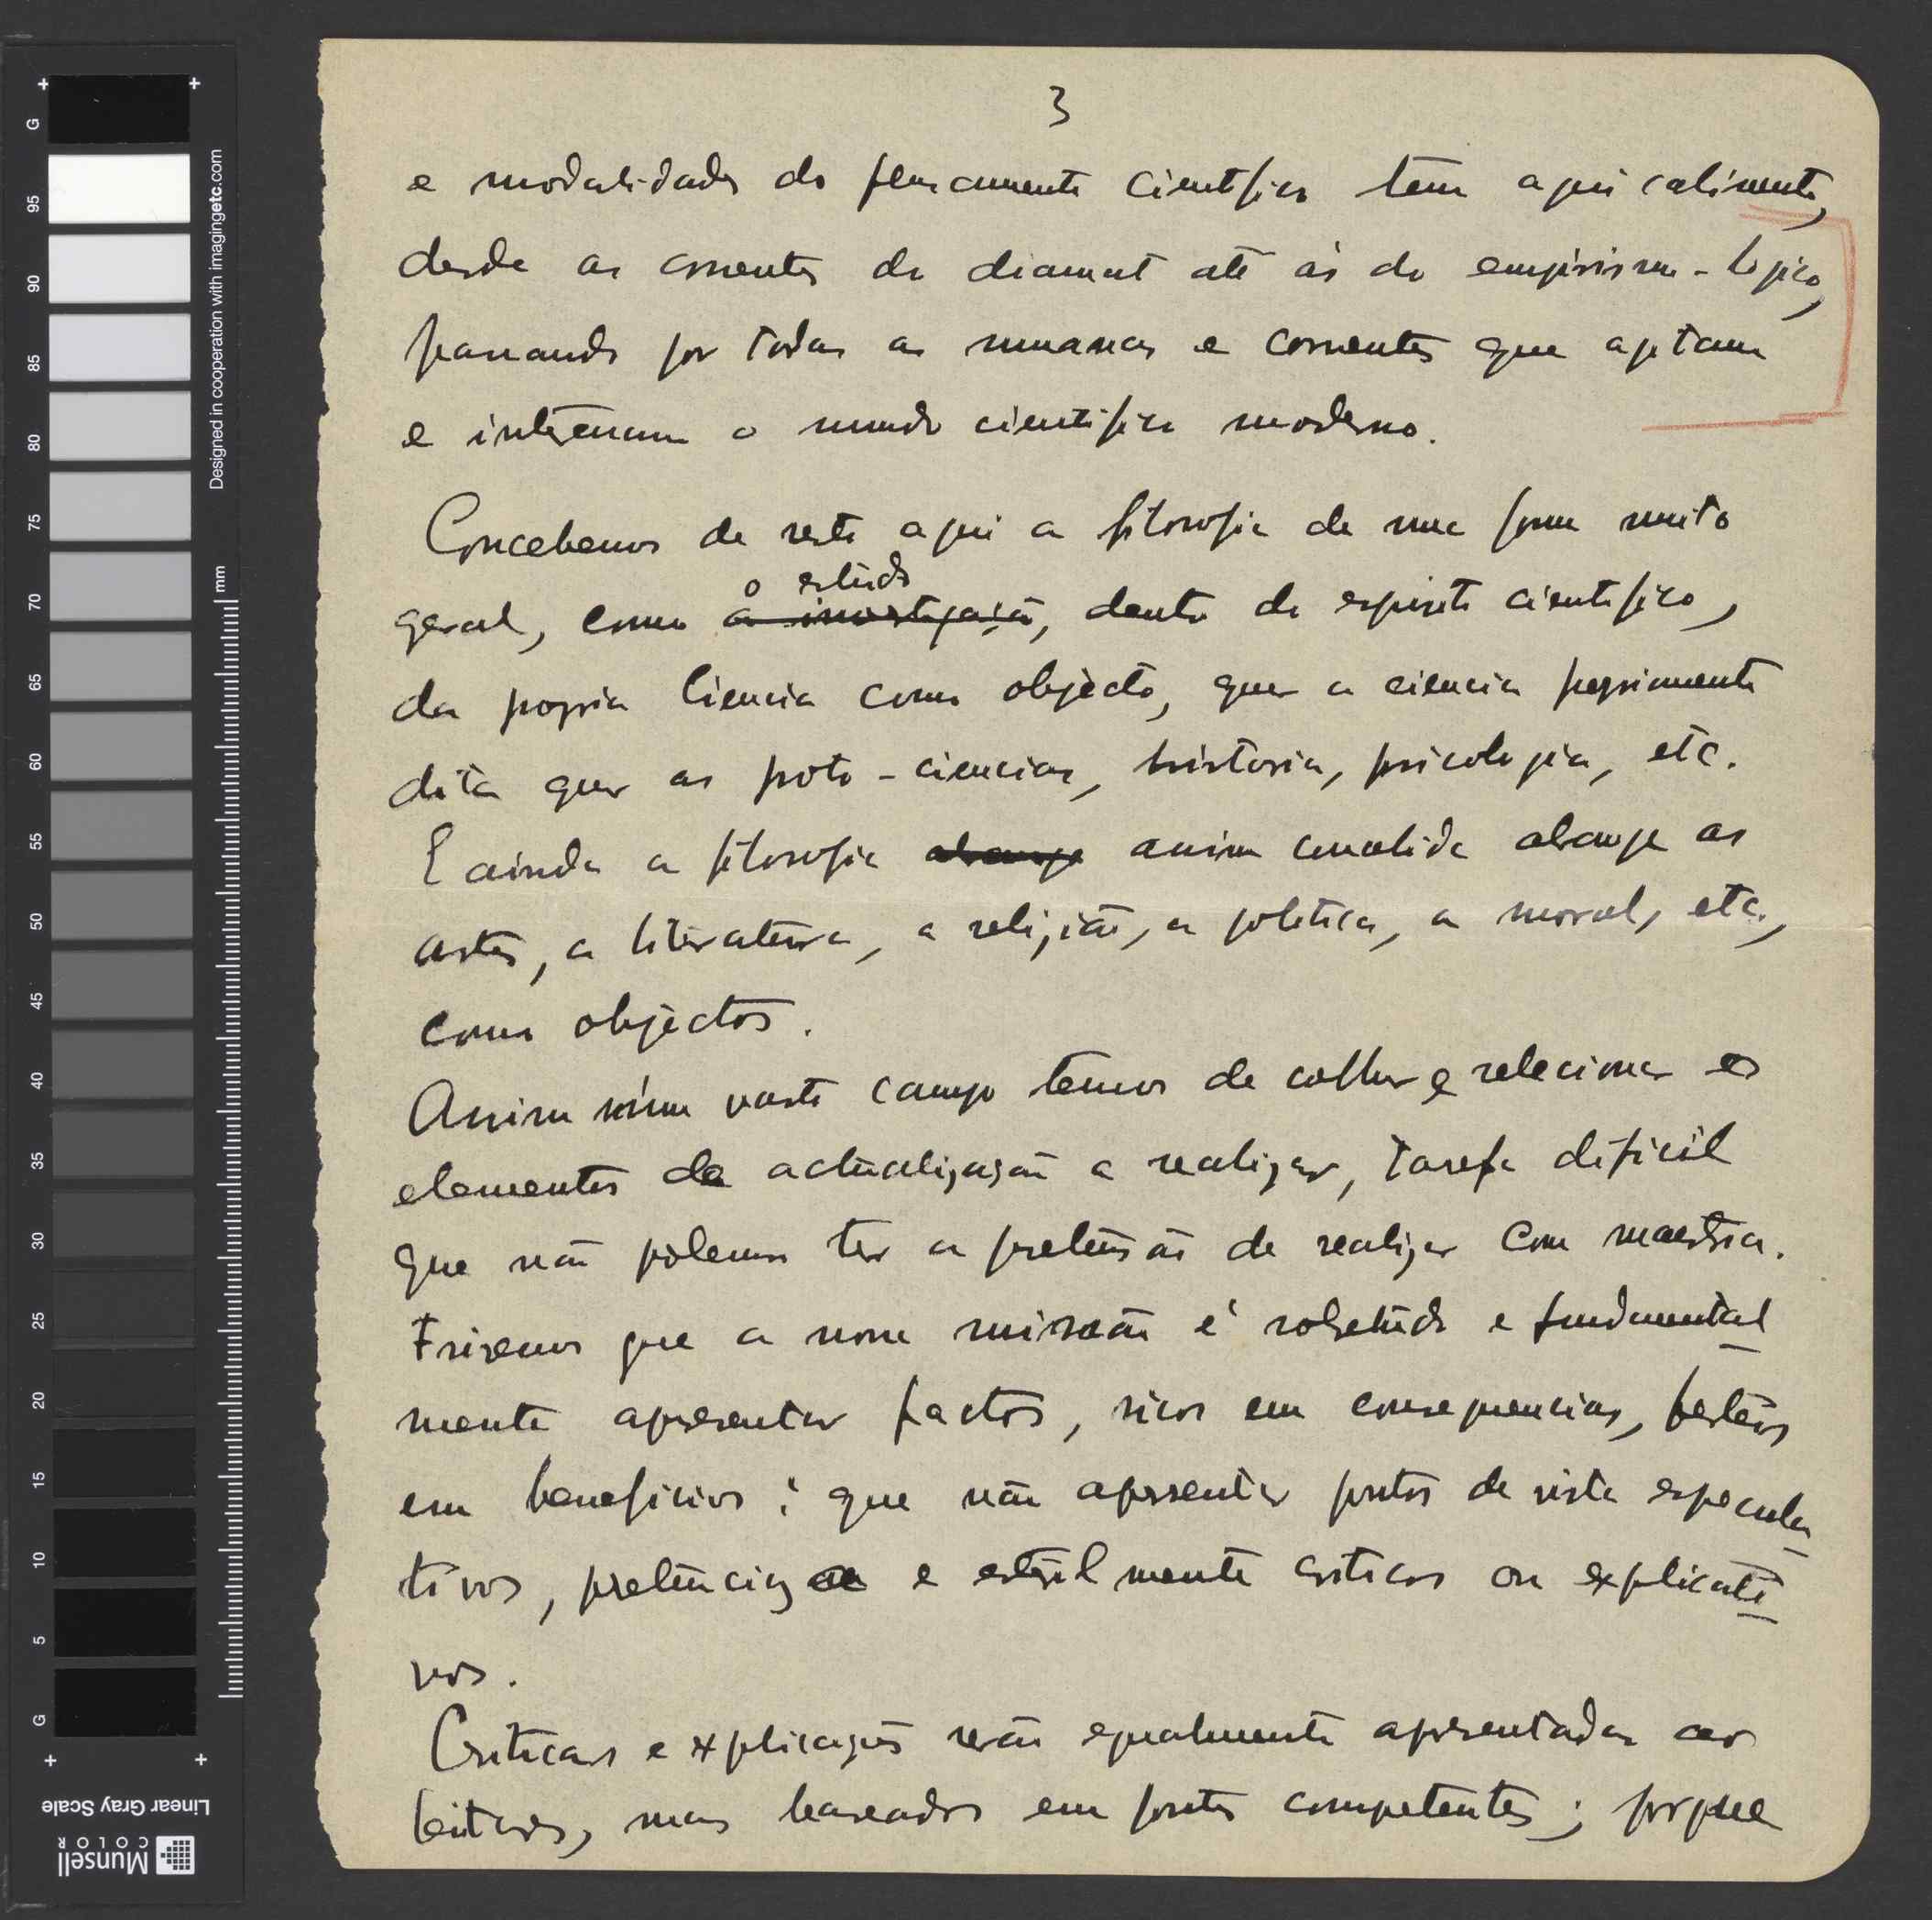 3
e modalidades do pensamento cientifico tem aqui cabimento,
desde as correntes do diamat até ás do empirismo-logico,
passando por todas as nuances e correntes que agitam
e interessam o mundo cientifico moderno.
Concebemos de resto aqui a filosofia de uma forma muito
o estudo
geral, como a investigação, dentro do espirito cientifico,
da propria Ciencia como objècto, quer a ciencia propriamente
dita quer as proto-ciencias, historia, psicologia, etc.
E ainda a filosofia abrange assim concebida abrange as
artes, a literatura, a religião, a politica, a moral, etc.,
como objèctos.
Assim núm vasto campo temos de colher e selecionar os
elementos da actualização a realizar, tarefa dificil
que não podemos ter a pretensão de realizar com maestria.
Frisemos que a nossa missão é sobretudo e fundamental
mente apresentar factos, ricos em consequencias, ferteis
em beneficios; que não apresentar pontos de vista especula
tivos, e estéril mente criticos ou explicati
vos.
Criticas e explicações serão egualmente apresentadas aos
leitores, mas baseados em fontes competentes; porque
G
95
90
85
80
75
70
65
60
55
50
45
40
35
30
25
20
15
10
5
G
mm
Designed in cooperation with imagingetc.com
Linear Gray Scale
Munsell
COLOR